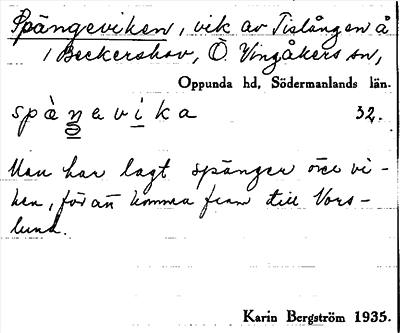 Spångeviken, vik av Tislången å
i Beckershov, Ö. Vingåkers sn,
Oppunda hd, Södermanlands län.
32.
Man har lagt spänger över vi-
ken, för att komma fram till Vors-
lund.
Karin Bergström 1935.